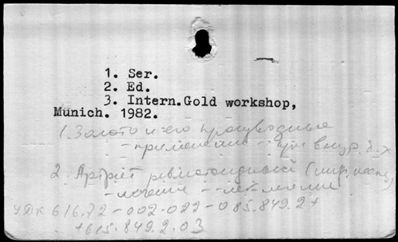 1. Ser.
2. Ed.
3. Intern.Gold workshop,
Munich. 1982.
1. Золото и его производные
- применение - при внутр. б-х
2. Артрит ревматоидный
- лечение
УДК 616.72-002-022-085.849.2+
+615.849.2.03